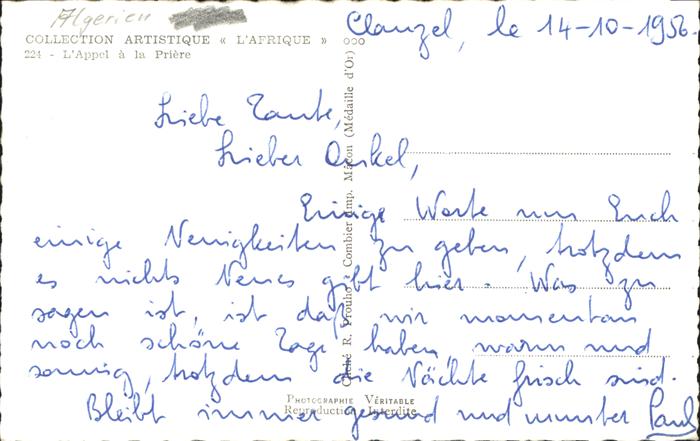 Algerien
Clauzel, le 14-10-1956.
COLLECTION ARTISTIQUE « L'AFRIQUE »
224 - L'Appel à la Prière
Liebe Tante,
Lieber Onkel,
Einige Worte um Euch
einige Neuigkeiten zu geben, trotzdem
es nichts Neues gibt hier. Was zu
sagen ist, ist daß wir momentan
noch schöne Tage haben, warm und
sonnig, trotzdem die Nächte frisch sind.
Bleibt immer gesund und munter Paul
Cliché R. Prouho - Combier Imp. Mâcon (Médaille d'Or)
PHOTOGRAPHIE VÉRITABLE
Reproduction Interdite